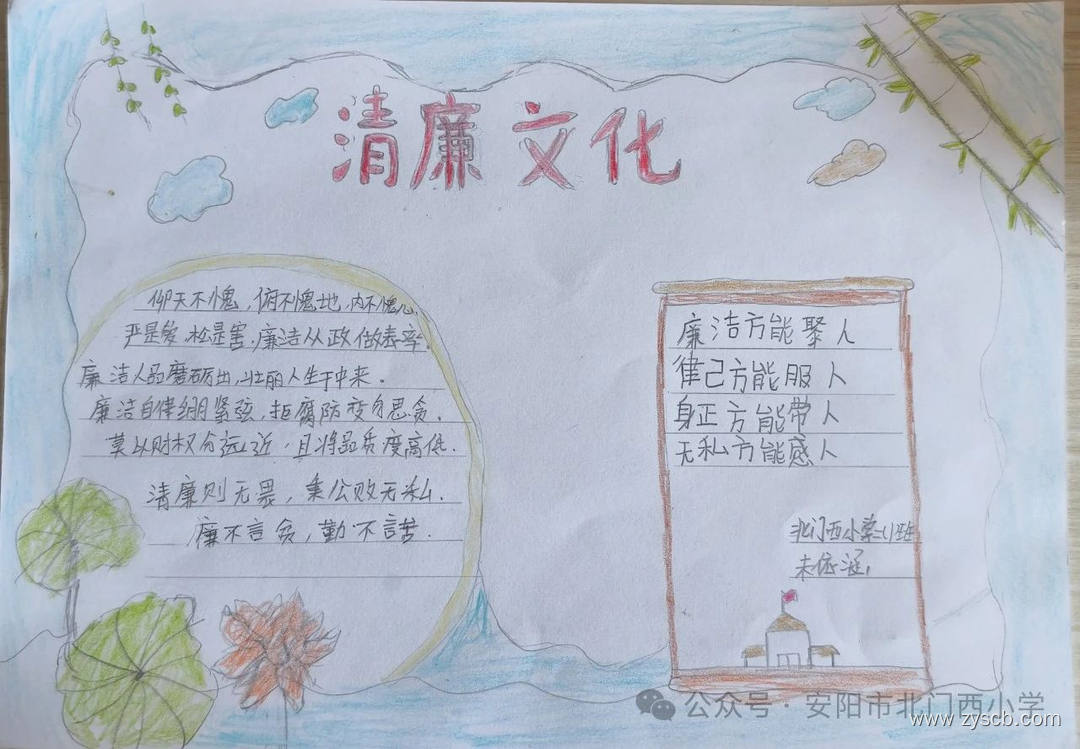 清廉文化
仰天不愧,俯不愧地,内不愧心.
严是爱,松是害,廉洁从政做表率.
廉洁人品磨砺出,壮丽人生于中来.
廉洁自律绷紧弦,拒腐防变勿思贪.
莫以财权分远近,且将品质度高低.
清廉则无畏,秉公败无私.
廉不言贪,勤不言苦.
廉洁方能聚人
律己方能服人
身正方能带人
无私方能感人
北门西小
依涵
公众号·安阳市北门西小学
www.zyscb.com